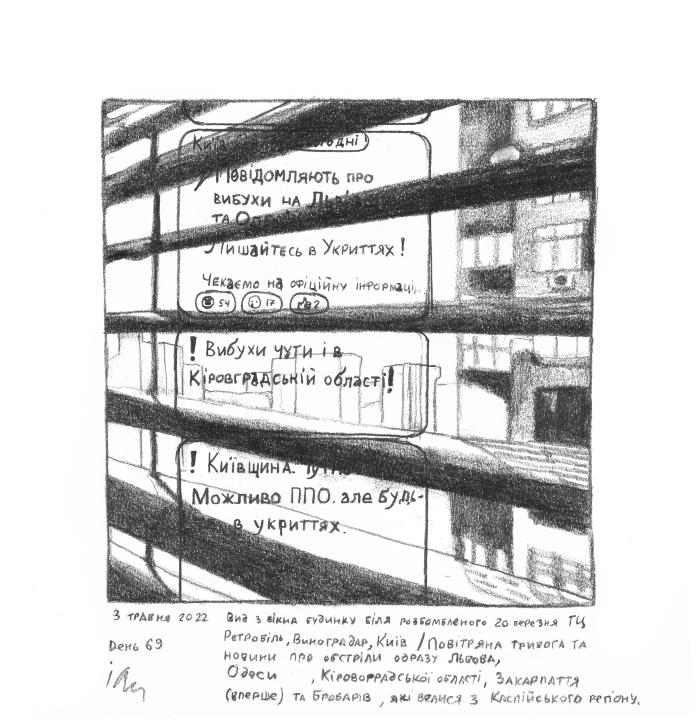 Київ сьогодні
Повідомляють про
вибухи на
та
Лишайтесь в Укриттях!
Чекаємо на офіційну інформаці
54 17 2
! Вибухи чути і в
Кіровградській області!
! Київщина.
Можливо ППО. але будь-
в укриттях.
3 травня 2022 Вид з вікна будинку біля розбомбленого 20 березня ТЦ
День 69 Ретровіль, Виноградар, Київ / Повітряна тривога та
новини про обстріли одразу Львова,
Одеси , Кіровоградської області, Закарпаття
(вперше) та Броварів , які велися з Каспійського регіону.